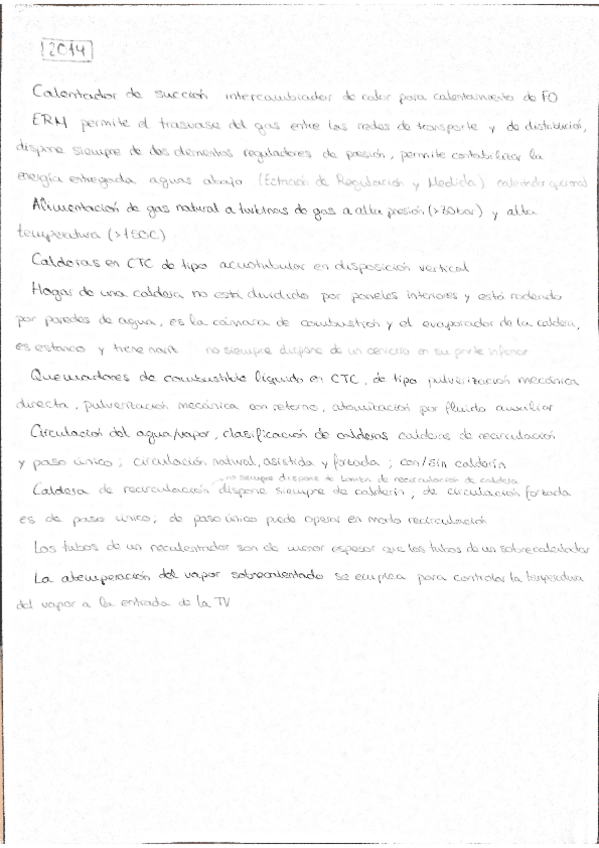 2014
Calentador de succión intercambiador de calor para calentamiento de FO
ERM permite el trasvase del gas entre las redes de transporte y de distribución,
dispone siempre de dos elementos reguladores de presión, permite contabilizar la
energía entregada aguas abajo (Estación de Regulación y Medida)
Alimentación de gas natural a turbinas de gas a alta presión (>30bar) y alta
temperatura (>150C)
Calderas en CTC de tipo acuotubular en disposición vertical
Hogar de una caldera no está dividido por paneles interiores y está rodeado
por paredes de agua, es la cámara de combustión y el evaporador de la caldera,
es estanco y tiene no siempre dispone de un cenicero en su parte inferior
Quemadores de combustible líquido en CTC, de tipo pulverización mecánica
directa, pulverización mecánica con retorno, atomización por fluido auxiliar
Circulación del agua/vapor, clasificación de calderas calderas de recirculación
y paso único; circulación natural, asistida y forzada; con/sin calderín
no siempre dispone de bomba de recirculación de caldera
Caldera de recirculación dispone siempre de calderín, de circulación forzada
es de paso único, de paso único puede operar en modo recirculación
Los tubos de un recalentador son de menor espesor que los tubos de un sobrecalentador
La atemperación del vapor sobrecalentado se emplea para controlar la temperatura
del vapor a la entrada de la TV